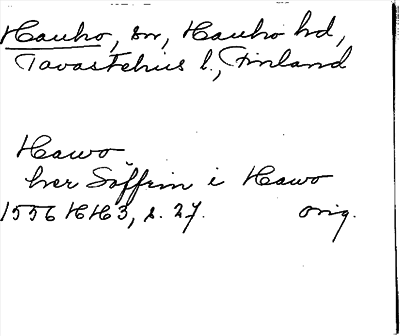 Hauho, sn, Hauho hd,
Tavastehus l., Finland
Hawo
her Söffrin i Hawo
1556 HH3, s. 27. orig.